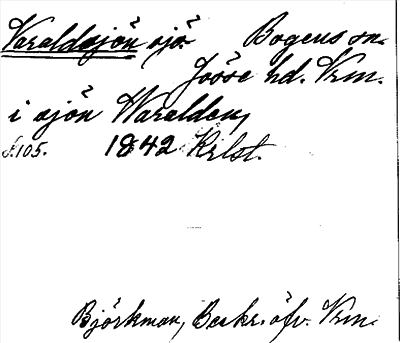 Varaldsjön sjö. Bogens sn.
Jösse hd. Vrm.
i sjön Waralden,
s. 105. 1842 Krlst.
Björkman, Beskr. öfv. Vrm.